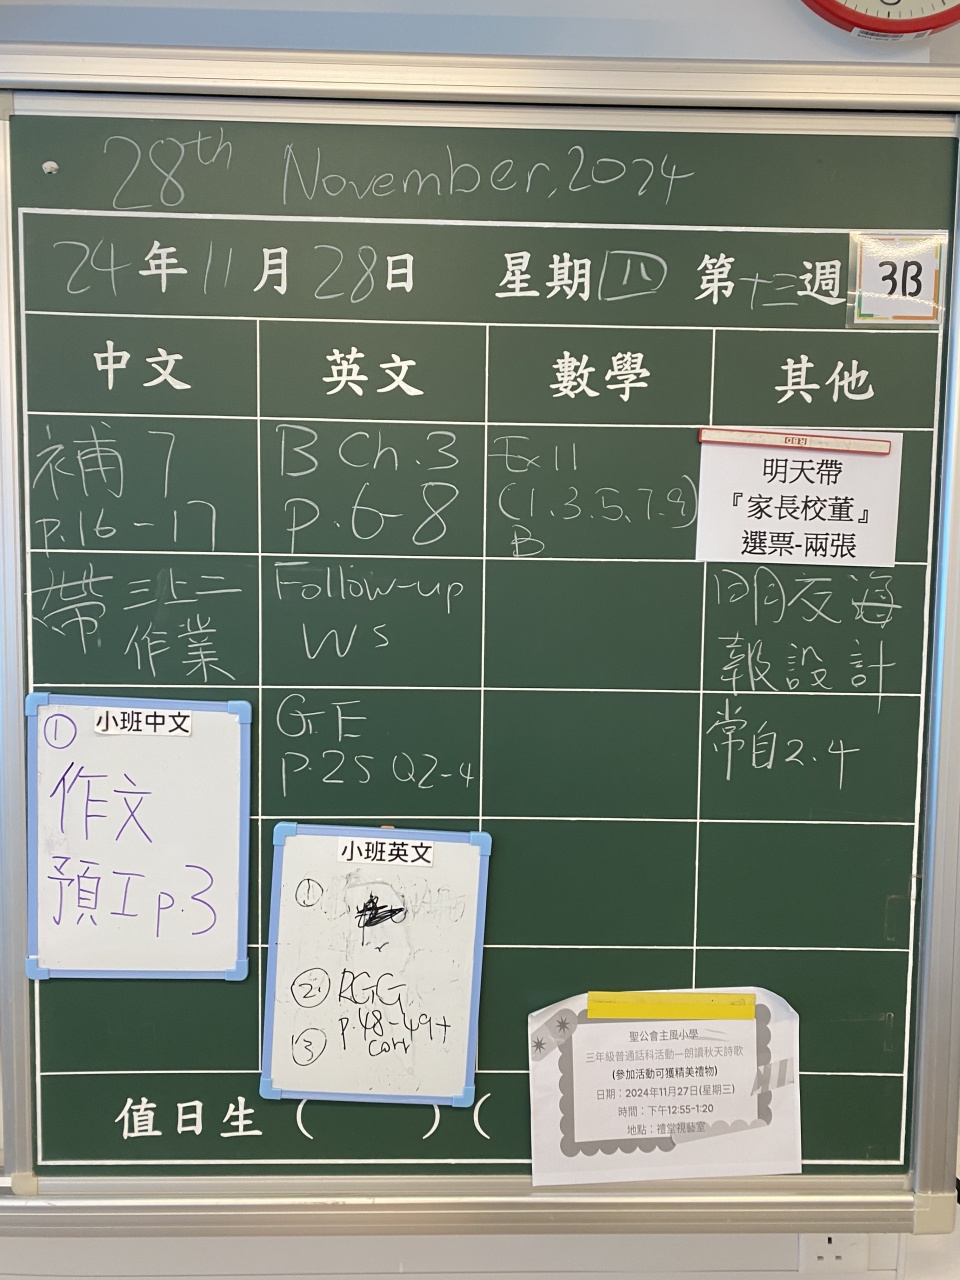 28th November, 2024
24年11月28日 星期四 第十三週 3B
中文 英文 數學 其他
補7
p.16-17
帶三上二
作業
B Ch.3
p.6-8
Follow-up
WS
G.E
p.25 Q2-4
Ex 11
(1.3.5.7.9)
B
明天帶
『家長校董』
選票-兩張
明交海
報設計
常自2.4
小班中文
① 作文
預工p.3
小班英文
①
② RGG
p.48-49+
③ corr
聖公會主風小學
三年級普通話科活動—朗讀秋天詩歌
(參加活動可獲精美禮物)
日期：2024年11月27日(星期三)
時間：下午12:55-1:20
地點：禮堂視藝室
值日生 ( ) (